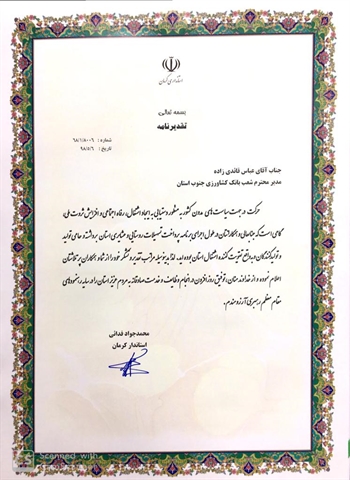 استانداری کرمان
بسمه تعالی
تقدیرنامه
شماره : ۹۸/۱/۸۰۰۶
تاریخ : ۹۸/۵/۶
جناب آقای عباس قائدی زاده
مدیر محترم شعب بانک کشاورزی جنوب استان
حرکت در جهت سیاست‌های مدون کشور به منظور دستیابی به ایجاد اشتغال، رفاه اجتماعی و افزایش ثروت ملی
گامی است که جنابعالی و همکارانتان در طول اجرای برنامه پرداخت تسهیلات روستایی و عشایری استان برداشته و حامی تولید
و تولیدکنندگان و در واقع تقویت کننده اشتغال استان بوده اید. لذا بدینوسیله مراتب تقدیر و تشکر خود را از شما و همکاران پرتلاشتان
اعلام نموده و از خداوند منان، توفیق روزافزون در انجام وظایف و خدمت صادقانه به مردم عزیز استان را در سایه رهنمودهای
مقام معظم رهبری آرزومندم.
محمدجواد فدائی
استاندار کرمان
Scanned with